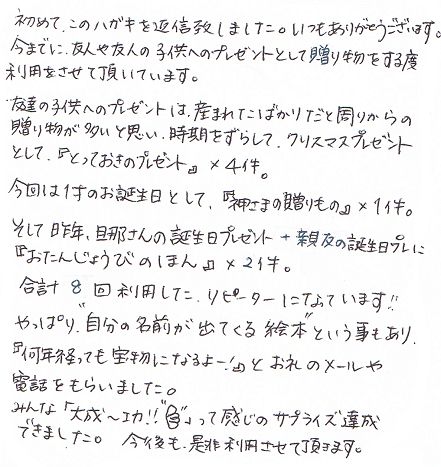 初めて、このハガキを返信致しました。いつもありがとうございます。
今までに、友人や友人の子供へのプレゼントとして贈り物をする度
利用をさせて頂いています。
友達の子供へのプレゼントは、産まれたばかりだと周りからの
贈り物が多いと思い、時期をずらして、クリスマスプレゼント
として、『とっておきのプレゼント』×4件。
今回は1才のお誕生日として、『神さまの贈りもの』×1件。
そして昨年、旦那さんの誕生日プレゼント+親友の誕生日プレに
『おたんじょうびのほん』×2件。
合計8回利用した、リピーターになっています!!
やっぱり"自分の名前が出てくる絵本"という事もあり、
『何年経っても宝物になるよー!』とお礼のメールや
電話をもらいました。
みんな「大成〜功!!」って感じのサプライズ達成
できました。今後も、是非利用させて頂きます。